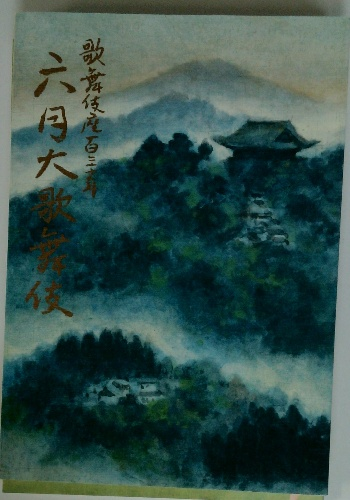 歌舞伎座百三十年
六月大歌舞伎